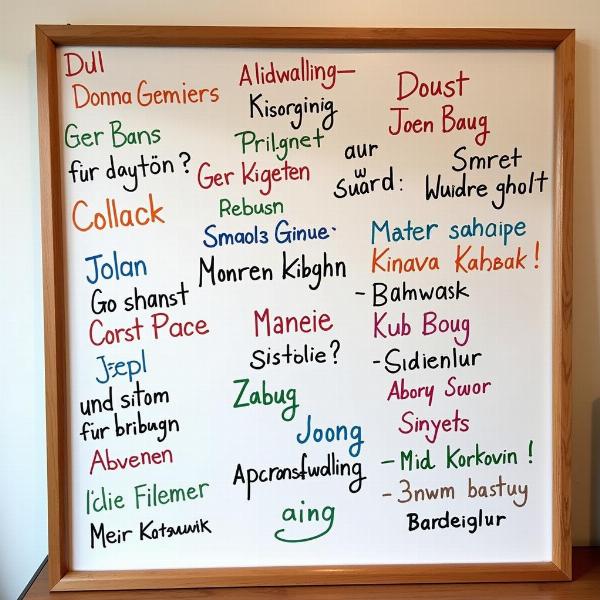 Dull
Donna Gemiers
Ger Bans
für daytön ?
Collack
Jolan
Go shanst
Corst Pace
und sitom
für bribugn
Abvenen
Filemer
Meir
Alidwalling—
Kisorginig
Prilgnet
Ger Kigeten
Rebusn
Smaol3 Ginue·
Monren Kibghn
Maneie
Sistolie?
Zabug
Joong
aing
aur
Suard:
Doust
Joen Baug
Smret
Wuidre gholt
Mater sahaipe
Kinava Kabsak !
- Bahwask
Kub Boug
-Sidienlur
Abory Suor
Sinyets
- Mid Korkovin !
- 3nwm bastuy
Bardeiglur